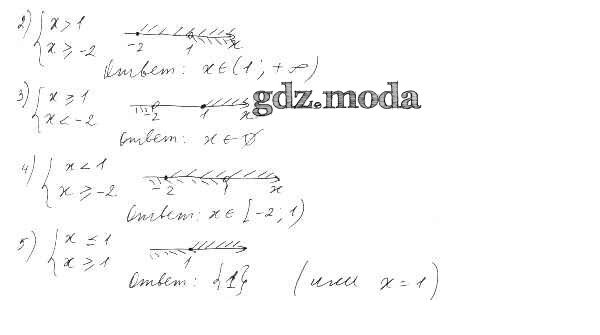 2) { x > 1
x ≥ -2
-2 1 x
Ответ: x ∈ (1; +∞)
3) { x ≥ 1
x < -2
-2 1 x
gdz.moda
Ответ: x ∈ ∅
4) { x < 1
x ≥ -2
-2 1 x
Ответ: x ∈ [-2; 1)
5) { x ≤ 1
x ≥ 1
1
Ответ: {1} (или x = 1)